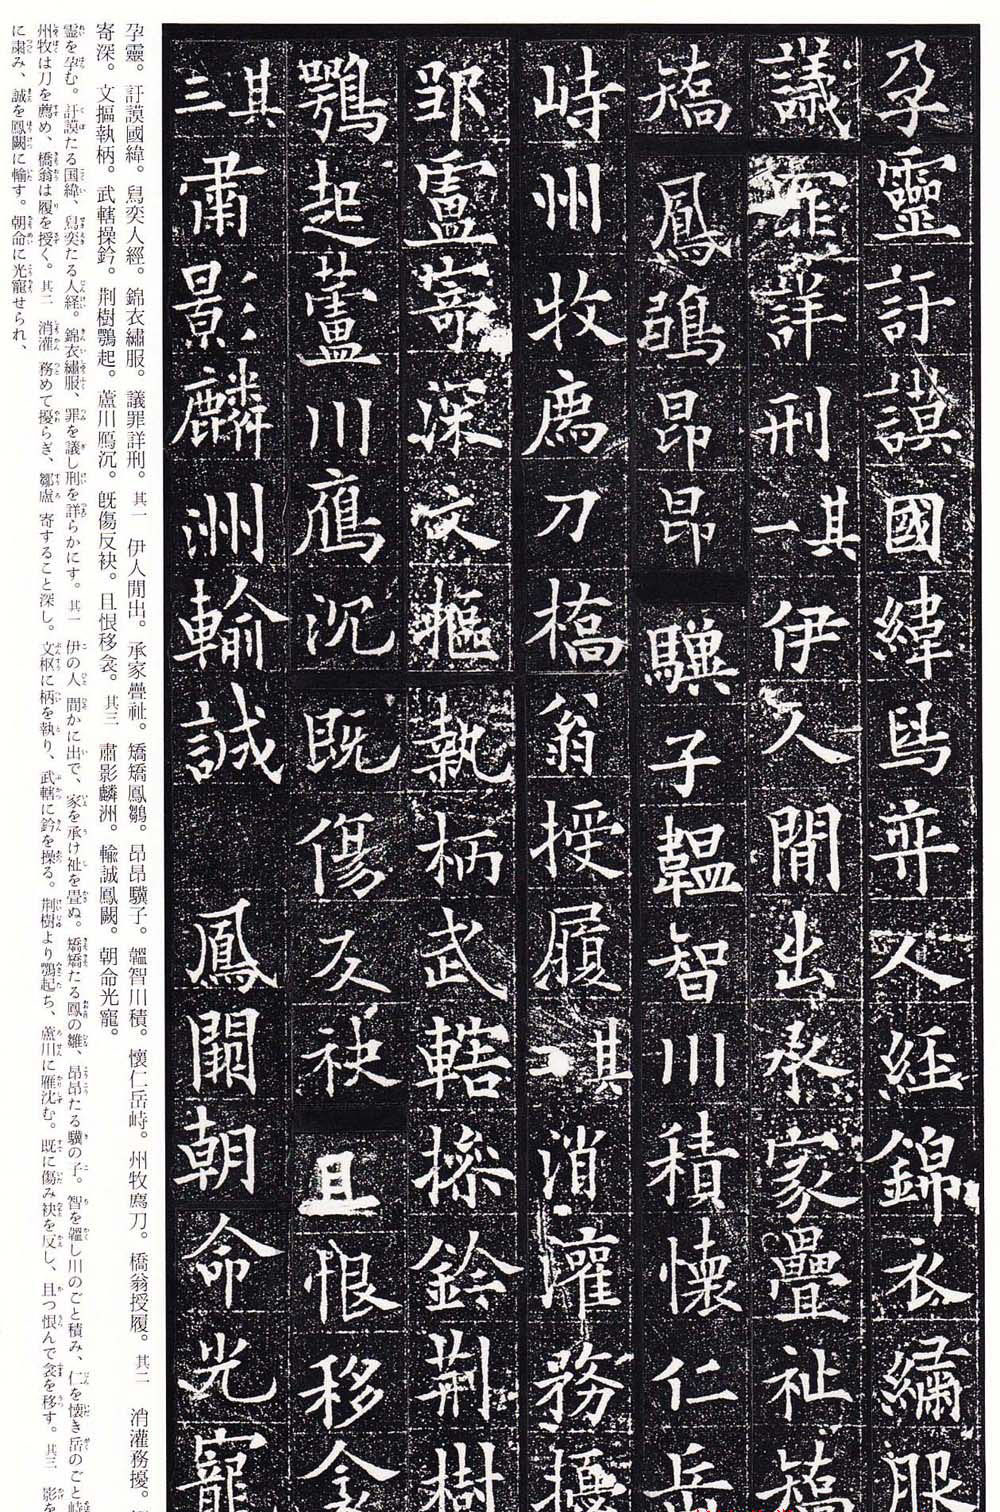 孕靈訏謨國緯舄弈人經錦衣繡服
議罪詳刑其一伊人閒出承家疊祉矯
矯鳳鶵昂昂驥子韞智川積懷仁岳
峙州牧薦刀橋翁授履其二消灌務擾
邹盧寄深文摳執柄武轄操鈐荆樹
鶚起蘆川鴈沉既傷反袂且恨移衾
其三肅影麟洲輸誠鳳闕朝命光寵
孕靈。訏謨國緯。舄奕人經。錦衣繡服。議罪詳刑。其一 伊人閒出。承家疊祉。矯矯鳳鶵。昂昂驥子。韞智川積。懷仁岳峙。州牧薦刀。橋翁授履。其二 消灌務擾。
寄深。文摳執柄。武轄操鈐。荆樹鶚起。蘆川鴈沉。既傷反袂。且恨移衾。其三 肅影麟洲。輸誠鳳闕。朝命光寵。
靈を孕む。訏謨たる国緯、舄奕たる人経。錦衣繡服、罪を議し刑を詳らかにす。其一 伊の人 間かに出で、家を承け祉を畳ぬ。矯矯たる鳳の雛、昂昂たる驥の子。智を韞し川のごと積み、仁を懐き岳のごと峙
州牧は刀を薦め、橋翁は履を授く。其二 消灌 務めて擾らぎ、鄒盧 寄すること深し。文枢に柄を執り、武轄に鈐を操る。荆樹より鶚起ち、蘆川に雁沈む。既に傷み袂を反し、且つ恨んで衾を移す。其三 影を
に粛み、誠を鳳闕に輸す。朝命に光寵せられ、